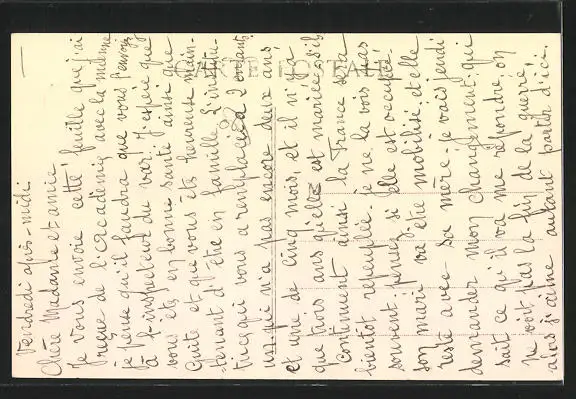 Vendredi après-midi
Chère Madame et amie
Je vous envoie cette feuille que j'ai
reçue de l'académie avec la même
Je pense qu'il faudra que vous l'envoyiez
à l'inspecteur du var. J'espère que
vous êtes en bonne santé ainsi que
et que vous êtes heureuse main-
tenant d'être en famille. L'institu-
trice qui vous a remplacée a 2 enfants
un qui n'a pas encore deux ans
et une de cinq mois, et il n'y a
que trois ans qu'elle est mariée, s'ils
continuent ainsi la France sera
bientôt repeuplée. je ne la vois pas
souvent, pensez si elle est occupée.
son mari va être mobilisé, et elle
reste avec sa mère. je vais jeudi
demander mon changement, qui
sait ce qu'il va me répondre, on
ne voit pas la fin de la guerre,
alors j'aime autant partir d'ici.
CARTE POSTALE